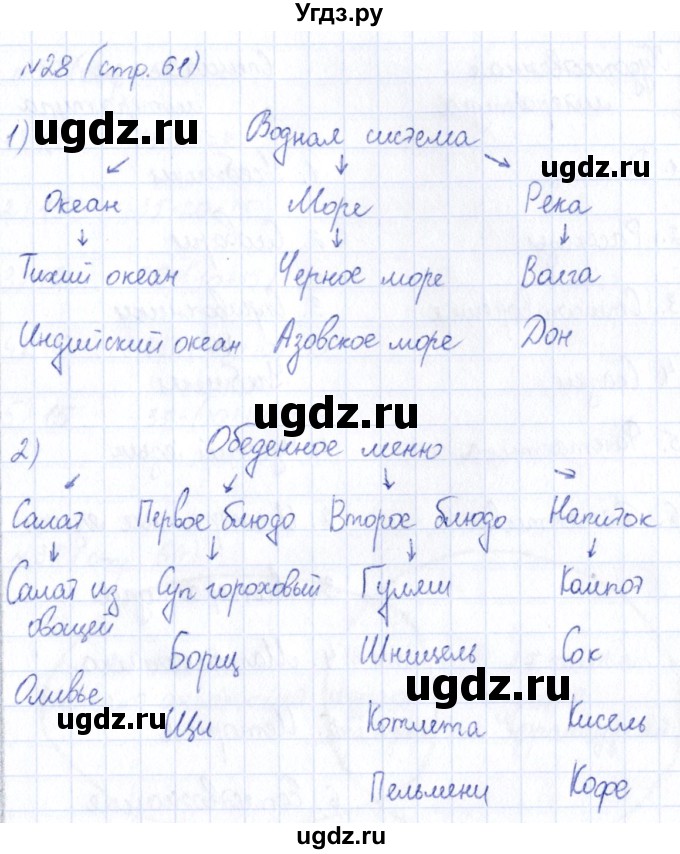 Угдз.ру
№28 (стр. 61)
ugdz.ru
1) Водная система
ugdz.ru
Океан Море Река
Тихий океан Черное море Волга
Индийский океан Азовское море Дон
ugdz.ru
2) Обеденное меню
Салат Первое блюдо Второе блюдо Напиток
Салат из Суп гороховый Гуляш Компот
овощей
Борщ Шницель Сок
ugdz.ru
Оливье
ugdz.ru
Щи Котлета Кисель
Пельмени Кофе
ugdz.ru